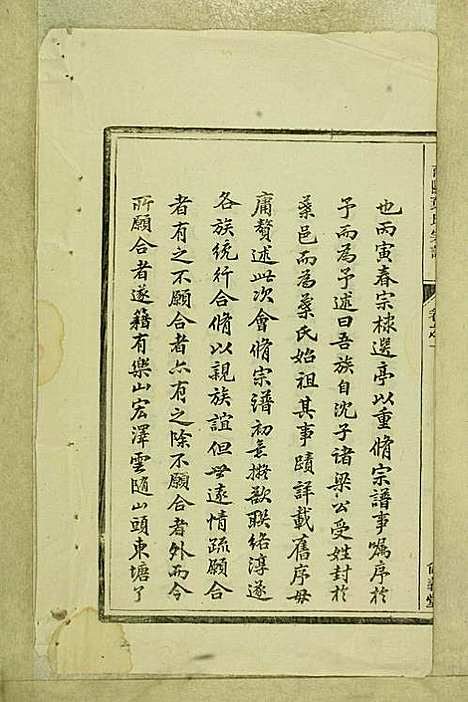 也丙寅春宗棣選亭以重脩宗譜事嘱序於
予而為予述曰吾族自沈子诸梁公受姓封於
葉邑而為葉氏始祖其事蹟詳載舊序毋
庸贅述此次會脩宗谱初意擬欲聯絡淳遂
各族统行合脩以親族誼但世遠情疏願合
者有之不願合者亦有之除不願合者外而今
所願合者遂籍有樂山宏澤雲随山頭東塘了